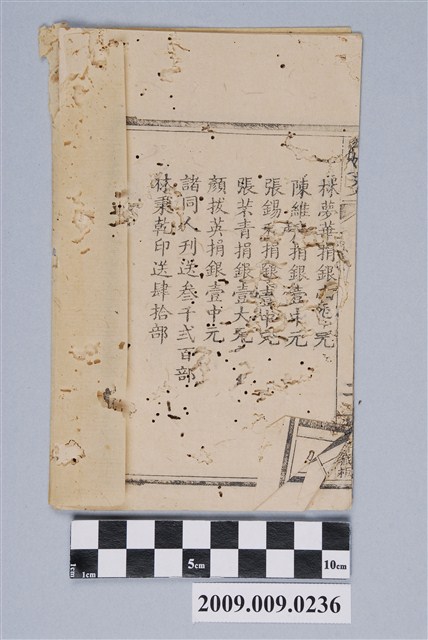 林夢華捐銀元
陳維捐銀壹中元
張錫捐銀壹中元
張苐青捐銀壹大元
顏拔英捐銀壹中元
諸同人刊送叁千弍百部
林秉乾印送肆拾部
5cm
10cm
1cm
1cm
2009.009.0236